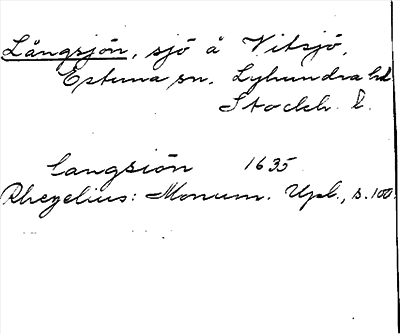 Långsjön, sjö å Vitsjö,
Estuna sn. Lyhundra hd.
Stockh. l.
Langsiön 1635
Rhezelius: Monum. Upl., s. 100.